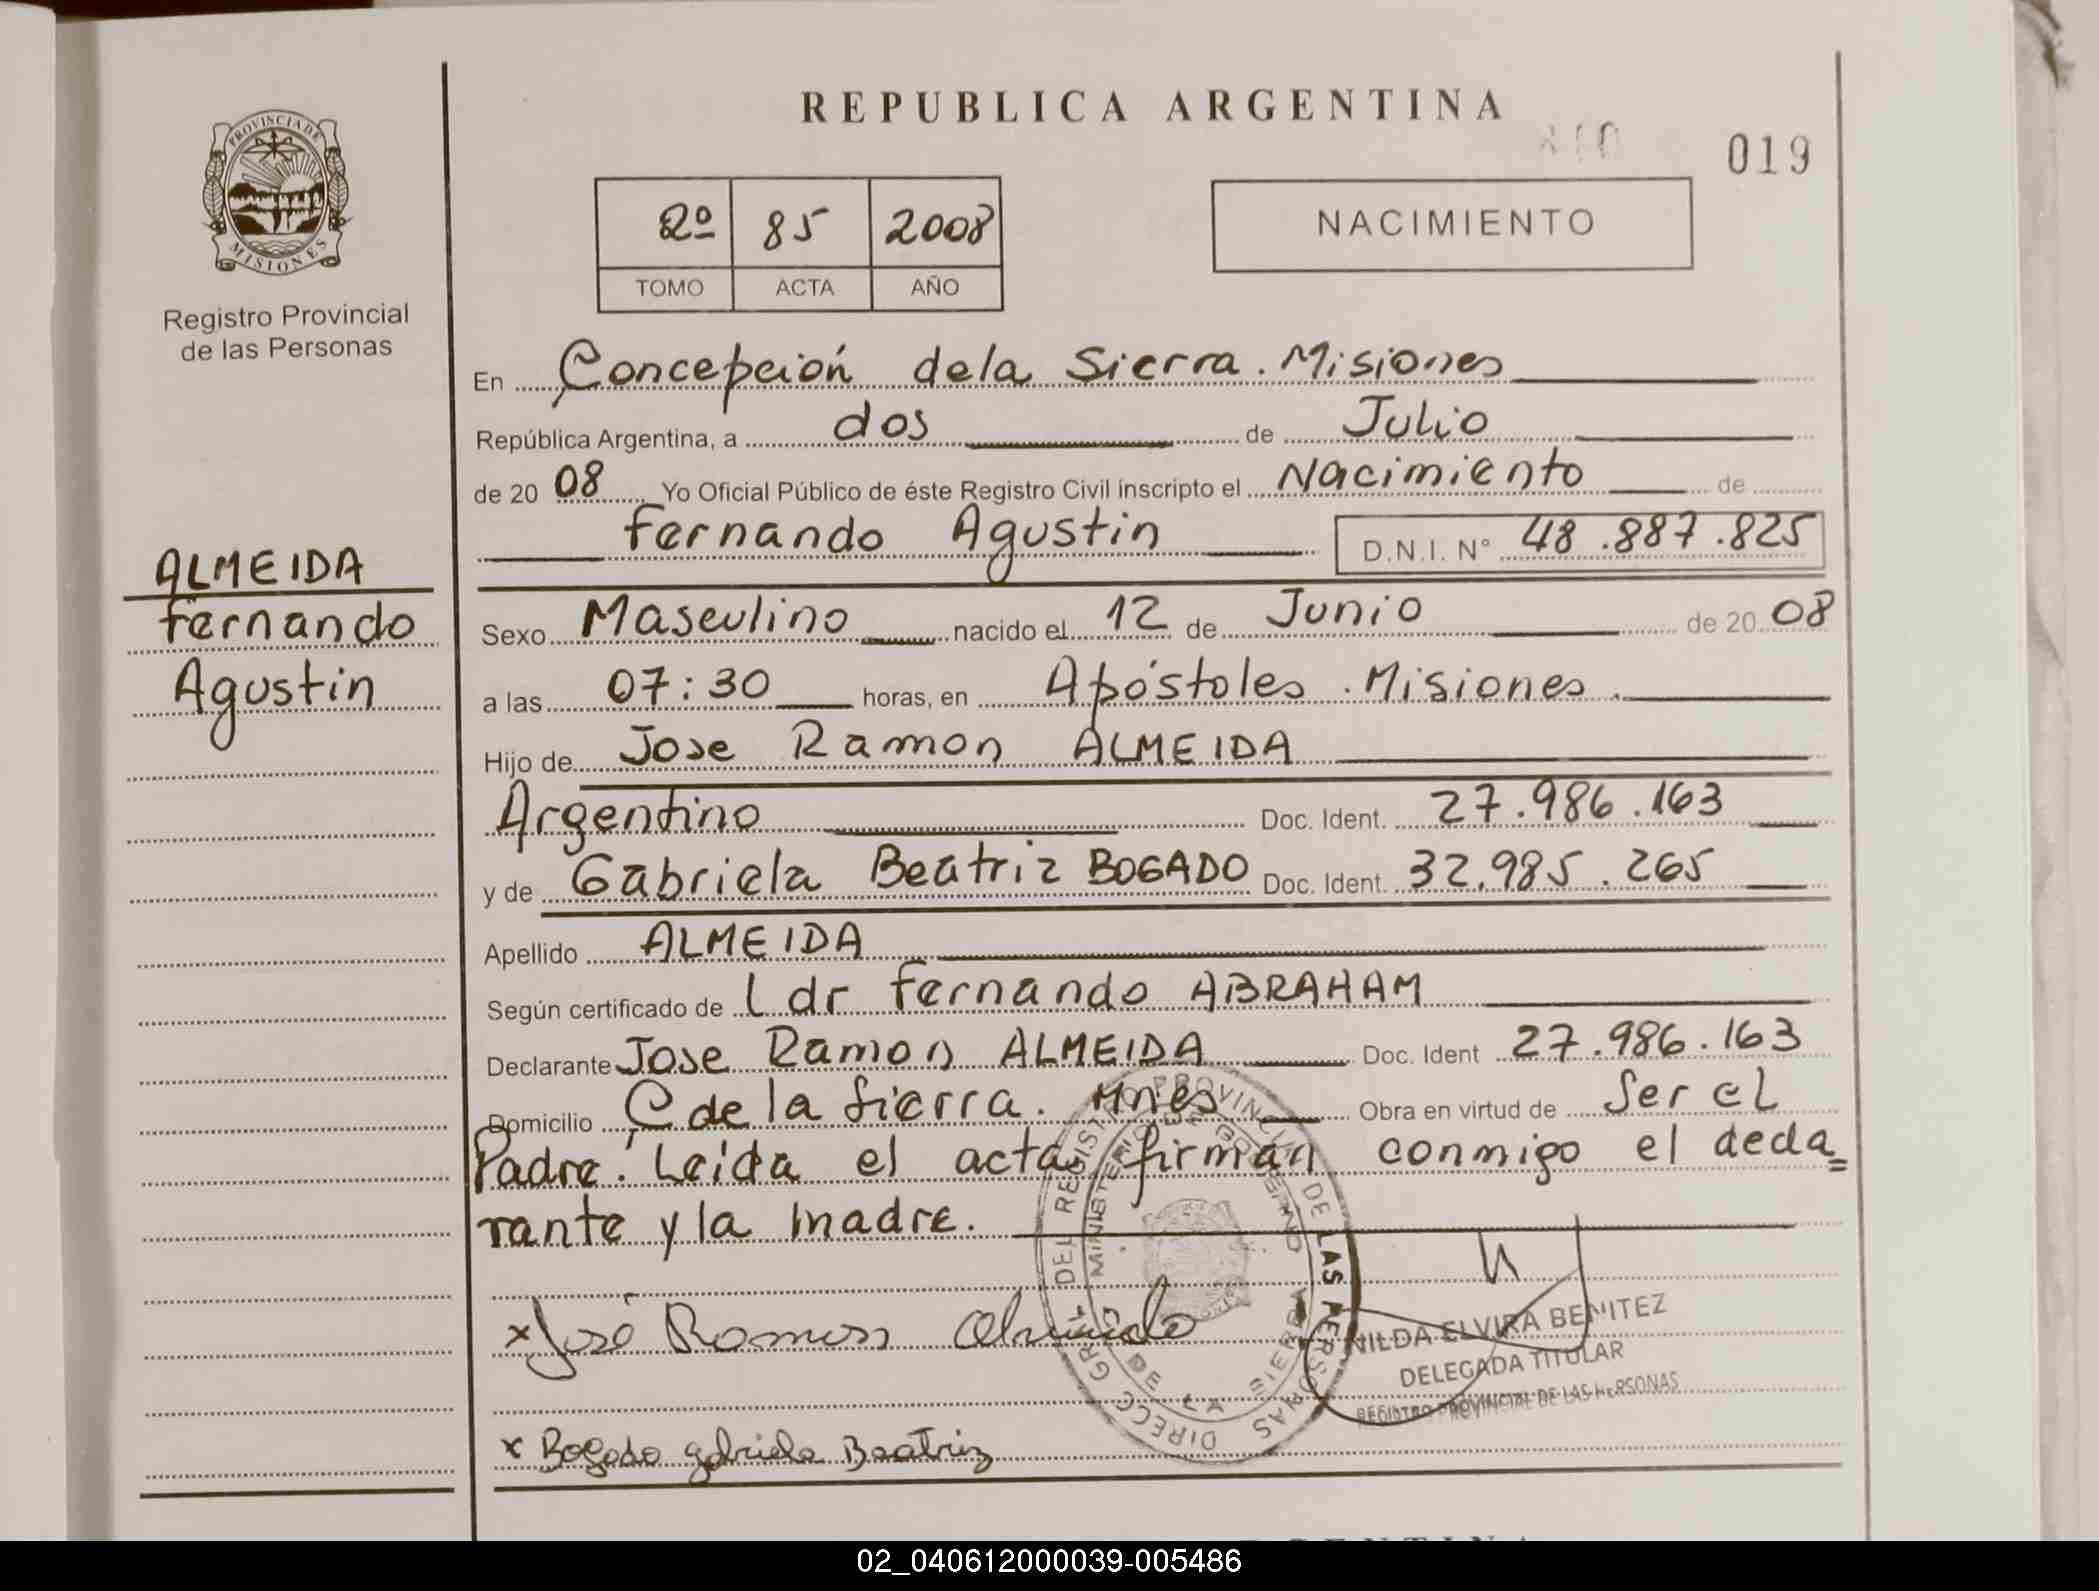 REPUBLICA ARGENTINA
019
PROVINCIA DE
MISIONES
Registro Provincial
de las Personas
2º 85 2008
TOMO ACTA AÑO
NACIMIENTO
En Concepción dela Sierra. Misiones
República Argentina, a dos de Julio
de 20 08 Yo Oficial Público de éste Registro Civil inscripto el Nacimiento de
Fernando Agustin D.N.I. N° 48.887.825
ALMEIDA
Fernando
Agustin
Sexo Masculino nacido el 12 de Junio de 20 08
a las 07:30 horas, en Apóstoles. Misiones.
Hijo de Jose Ramon ALMEIDA
Argentino Doc. Ident. 27.986.163
y de Gabriela Beatriz BOGADO Doc. Ident. 32.985.265
Apellido ALMEIDA
Según certificado de dr Fernando ABRAHAM
Declarante Jose Ramon ALMEIDA Doc. Ident 27.986.163
Domicilio C de la Sierra. Mnes Obra en virtud de Ser el
Padre. Leída el acta firman conmigo el decla=
rante y la madre.
x José Ramon Almeida
x Bogado gabriela Beatriz
DIRECC GRAL DEL REGISTRO PROVINCIAL DE LAS PERSONAS
MINISTERIO DE GOBIERNO
DE LA SIERRA
NILDA ELVIRA BENITEZ
DELEGADA TITULAR
REGISTRO PROVINCIAL DE LAS PERSONAS
02_040612000039-005486